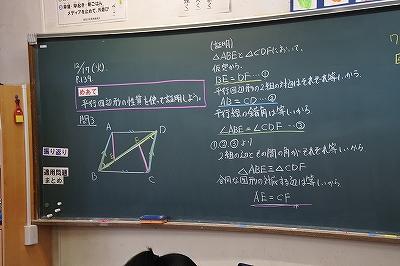 12/17(火)
P139
めあて
平行四辺形の性質を使って証明しよう。
例3
A
D
B
C
振り返り
適用問題
まとめ
(証明)
△ABEと△CDFにおいて、
仮定から、
BE=DF…①
平行四辺形の2組の対辺はそれぞれ等しいから、
AB=CD…②
平行線の錯角は等しいから
∠ABE=∠CDF…③
①②③より
2組の辺とその間の角がそれぞれ等しいから
△ABE≡△CDF
合同な図形の対応する辺は等しいから
AE=CF